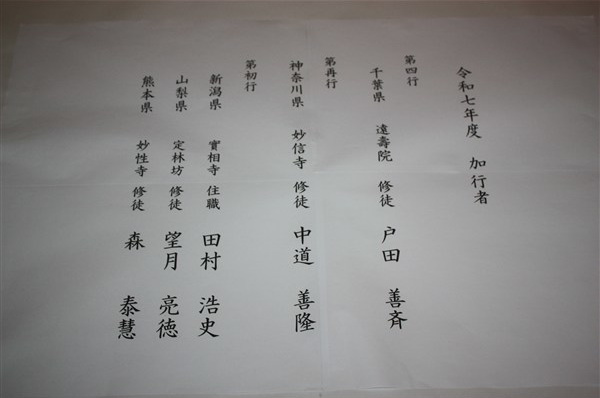 令和七年度 加行者
第四行
千葉県 遠壽院 修徒 戸田 善斉
第再行
神奈川県 妙信寺 修徒 中道 善隆
第初行
新潟県 實相寺 住職 田村 浩史
山梨県 定林坊 修徒 望月 亮徳
熊本県 妙性寺 修徒 森 泰慧